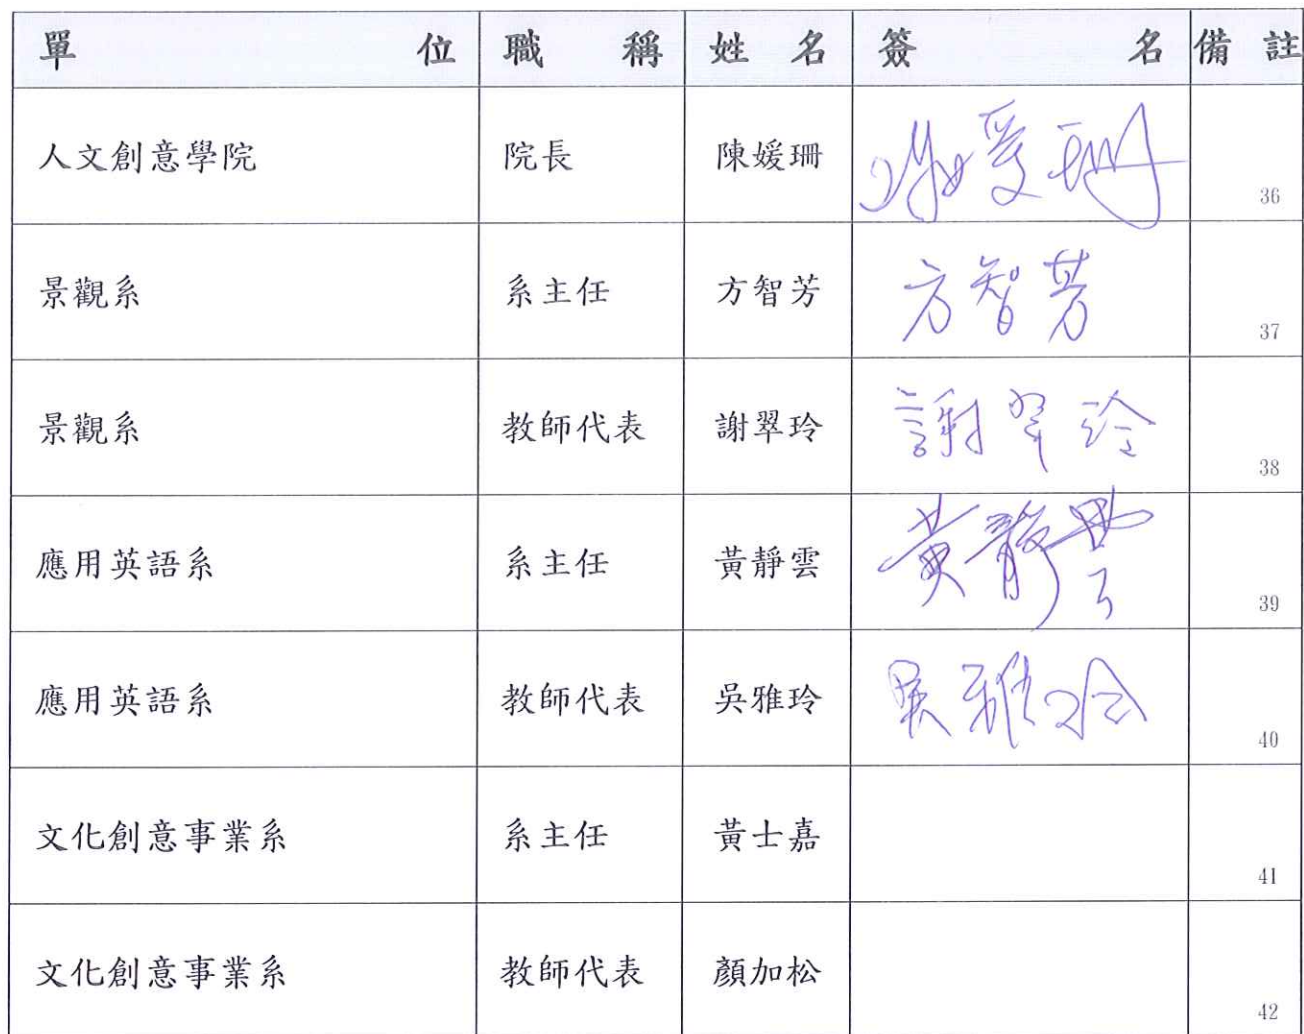 單位 職稱 姓名 簽名 備註
人文創意學院 院長 陳媛珊 陳媛珊 36
景觀系 系主任 方智芳 方智芳 37
景觀系 教師代表 謝翠玲 謝翠玲 38
應用英語系 系主任 黃靜雲 黃靜雲 39
應用英語系 教師代表 吳雅玲 吳雅玲 40
文化創意事業系 系主任 黃士嘉 41
文化創意事業系 教師代表 顏加松 42